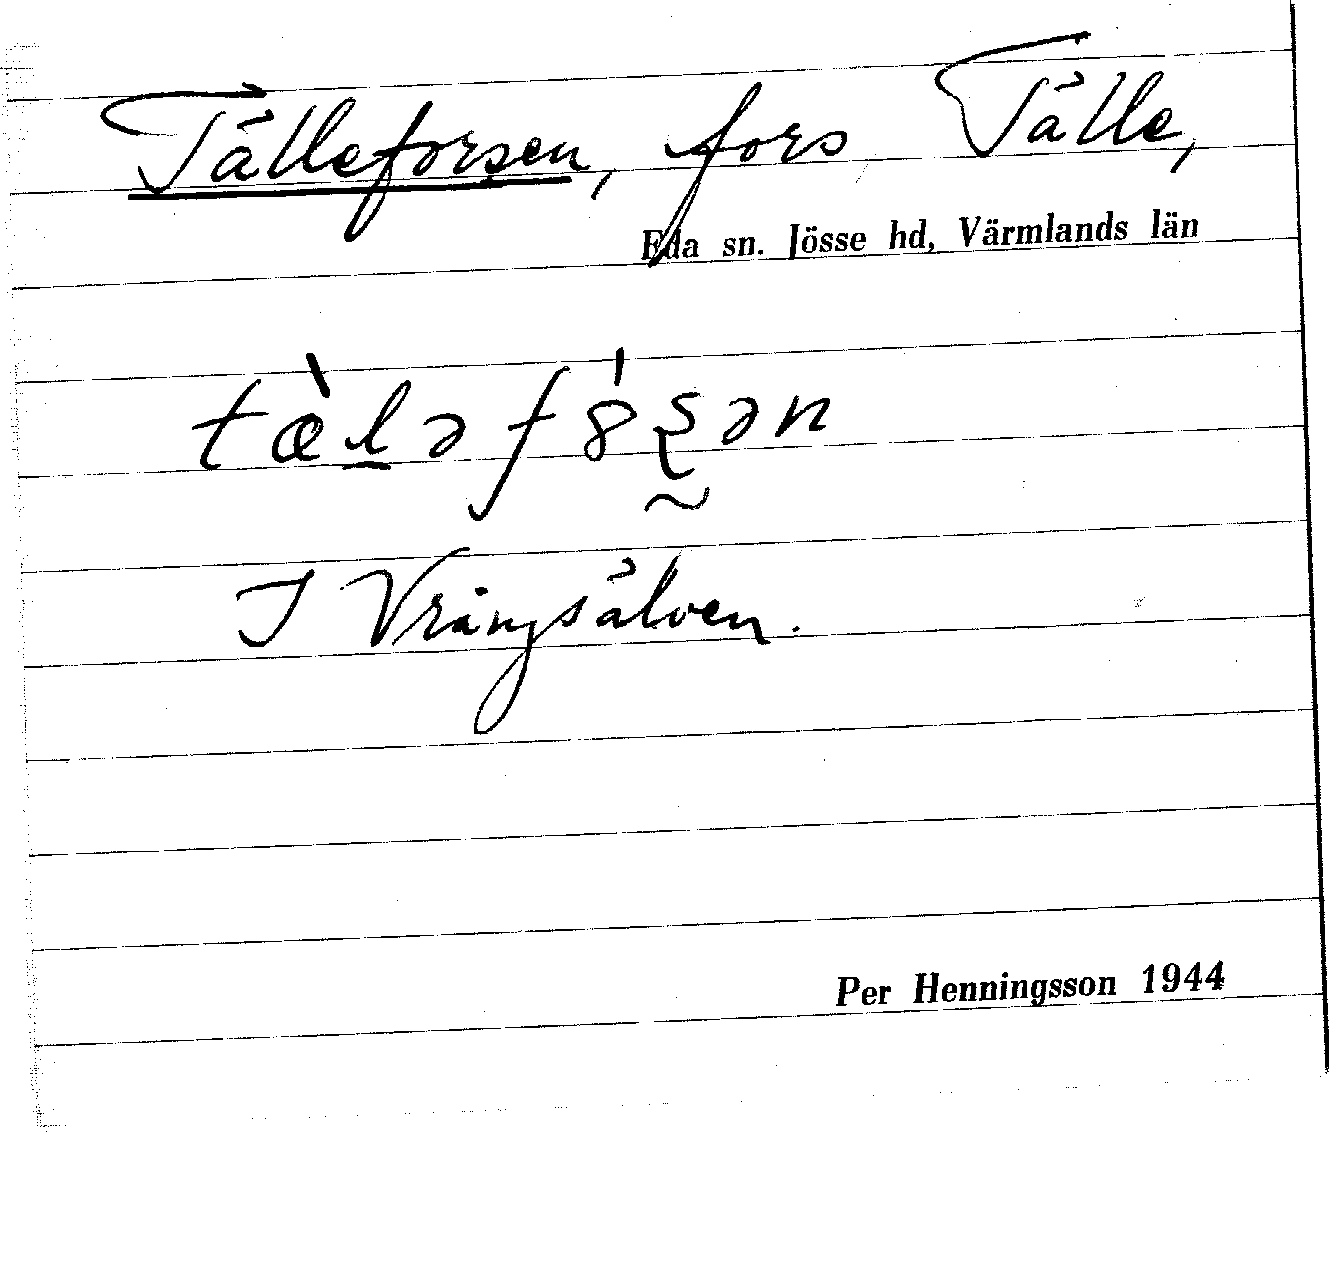 Tälleforsen, fors Tälle,
Eda sn. Jösse hd, Värmlands län
tæ̀l̠əfȣ́ʂən
I Vrångsälven.
Per Henningsson 1944